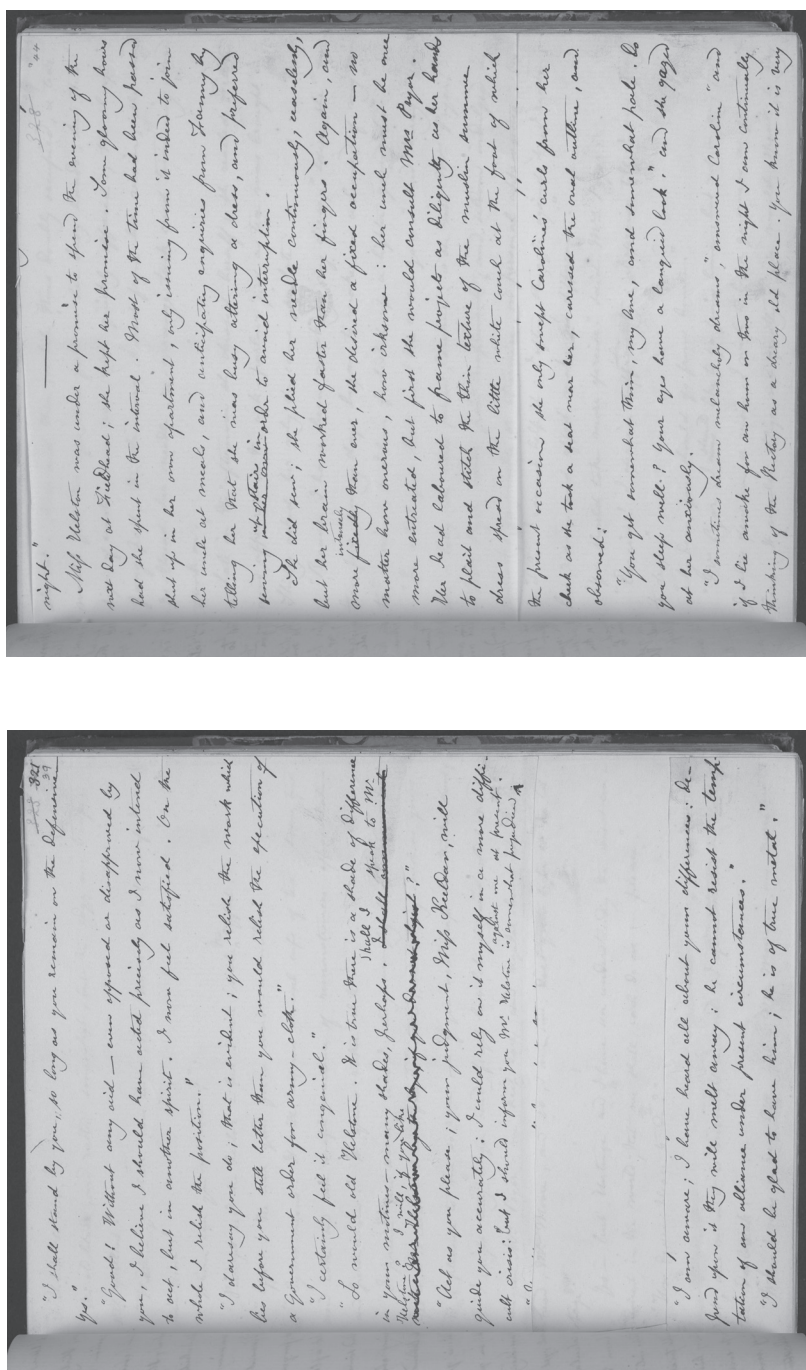 244
night."
Miss Helstone was under a promise to spend the evening of the
next day at Fieldhead; she kept her promise. Some gloomy hours
had she spent in the interval. Most of the time had been passed
shut up in her own apartment, only issuing from it indeed to join
her uncle at meals, and anticipating enquiries from Fanny by
telling her that she was busy altering a dress, and preferred
sewing up-stairs in order to avoid interruption.
She did sew; she plied her needle continuously, ceaselessly,
but her brain worked faster than her fingers. Again, and
more intensely fixedly than ever, she desired a fixed occupation — no
matter how onerous, how irksome: her uncle must be once
more entreated, but first she would consult Mrs Pryor.
Her head laboured to frame projects as diligently as her hands
to plait and stitch the thin texture of the muslin summer
dress spread on the little white couch at the foot of which
the present occasion she only swept Caroline's curls from her
cheek as she took a seat near her, caressed the oval outline, and
observed:
"You get somewhat thin, my love, and somewhat pale. Do
you sleep well? Your eyes have a languid look." and she gazed
at her anxiously.
"I sometimes dream melancholy dreams," answered Caroline "and
if I lie awake for an hour or two in the night I am continually
thinking of the Rectory as a dreary old place. You know it is very
321
39
"I shall stand by you, so long as you remain on the defensive
yes."
"Good! Without any aid — even opposed or disapproved by
you, I believe I should have acted precisely as I now intend
to act, but in another spirit. I now feel satisfied. On the
whole I relish the position."
"I daresay you do; that is evident; you relish the work which
lies before you still better than you would relish the execution of
a Government order for army-cloth."
"I certainly feel it congenial."
"So would old Helstone. It is true there is a shade of difference
in your motives — many shades, perhaps. Shall I speak to Mr
Helstone? I will if you like
"Act as you please; your judgment, Miss Keeldar, will
guide you accurately: I could rely on it myself in a more diffi-
cult crisis: but I should inform you Mr Helstone is somewhat prejudiced
against me at present.
"I am aware; I have heard all about your differences: de-
pend upon it they will melt away: he cannot resist the temp-
tation of an alliance under present circumstances."
"I should be glad to have him; he is of true metal."